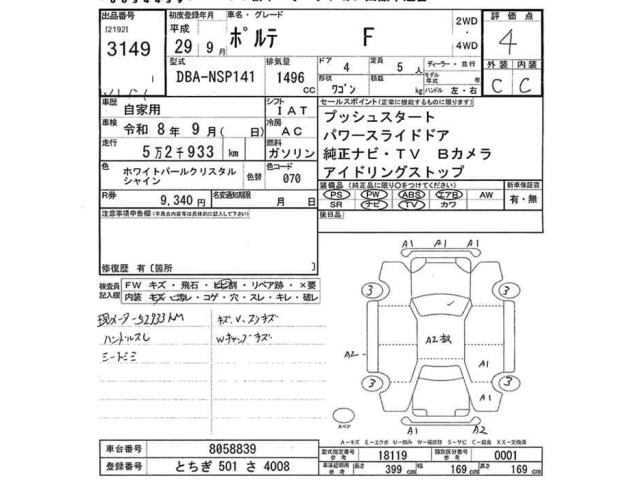 出品番号 初度登録年月 車名・グレード 2WD 評価点
[2192] 平成 ポルテ F
3149 29年 9月 4WD 4
型式 排気量 ドア 定員 ディーラー・並行 外装 内装
DBA-NSP141 1496 cc 4 5人
形状 ワゴン 積載 kg モデル年式 年式 ハンドル 左・右 C C
車歴 自家用 シフト IAT セールスポイント(正常に機能するものに限ります)
車検 令和 8年 9月(日) 冷房 AC プッシュスタート
パワースライドドア
走行 5万2千933 km 燃料 ガソリン 純正ナビ・TV Bカメラ
色 ホワイトパールクリスタルシャイン 色替 色コード 070 アイドリングストップ
装備品(純正品に限り○をつけてください) 新車保証書
R券 9,340円 名変通知期限 月 日 PS PW ABS エアB AW 有・無
SR ナビ TV カワ
注意事項申告欄(不具合内容等は具体的に記入して下さい) 後日品
修復歴 有[箇所 ]
検査員記入欄 FW キズ・飛石・ヒビ割・リペア跡・×要
内装 キズ・汚れ・コゲ・穴・スレ・キレ・破レ
現メーター52933KM キズ、V、スリキズ
ハンドルスレ Wチャップキズ
シートシミ
A1 A1 A1
3 3
A2 A2枚 A1
3 3
A1
A1 A2
スペア
A-キズ E-エクボ U-凹み W-補修跡 S-サビ C-腐食 XX-交換済
車台番号 8058839 型式指定番号 参考 18119 類別区分番号 参考 0001
登録番号 とちぎ 501 さ 4008 車庫証明用 参考 長さ 399 cm 幅 169 cm 高さ 169 cm